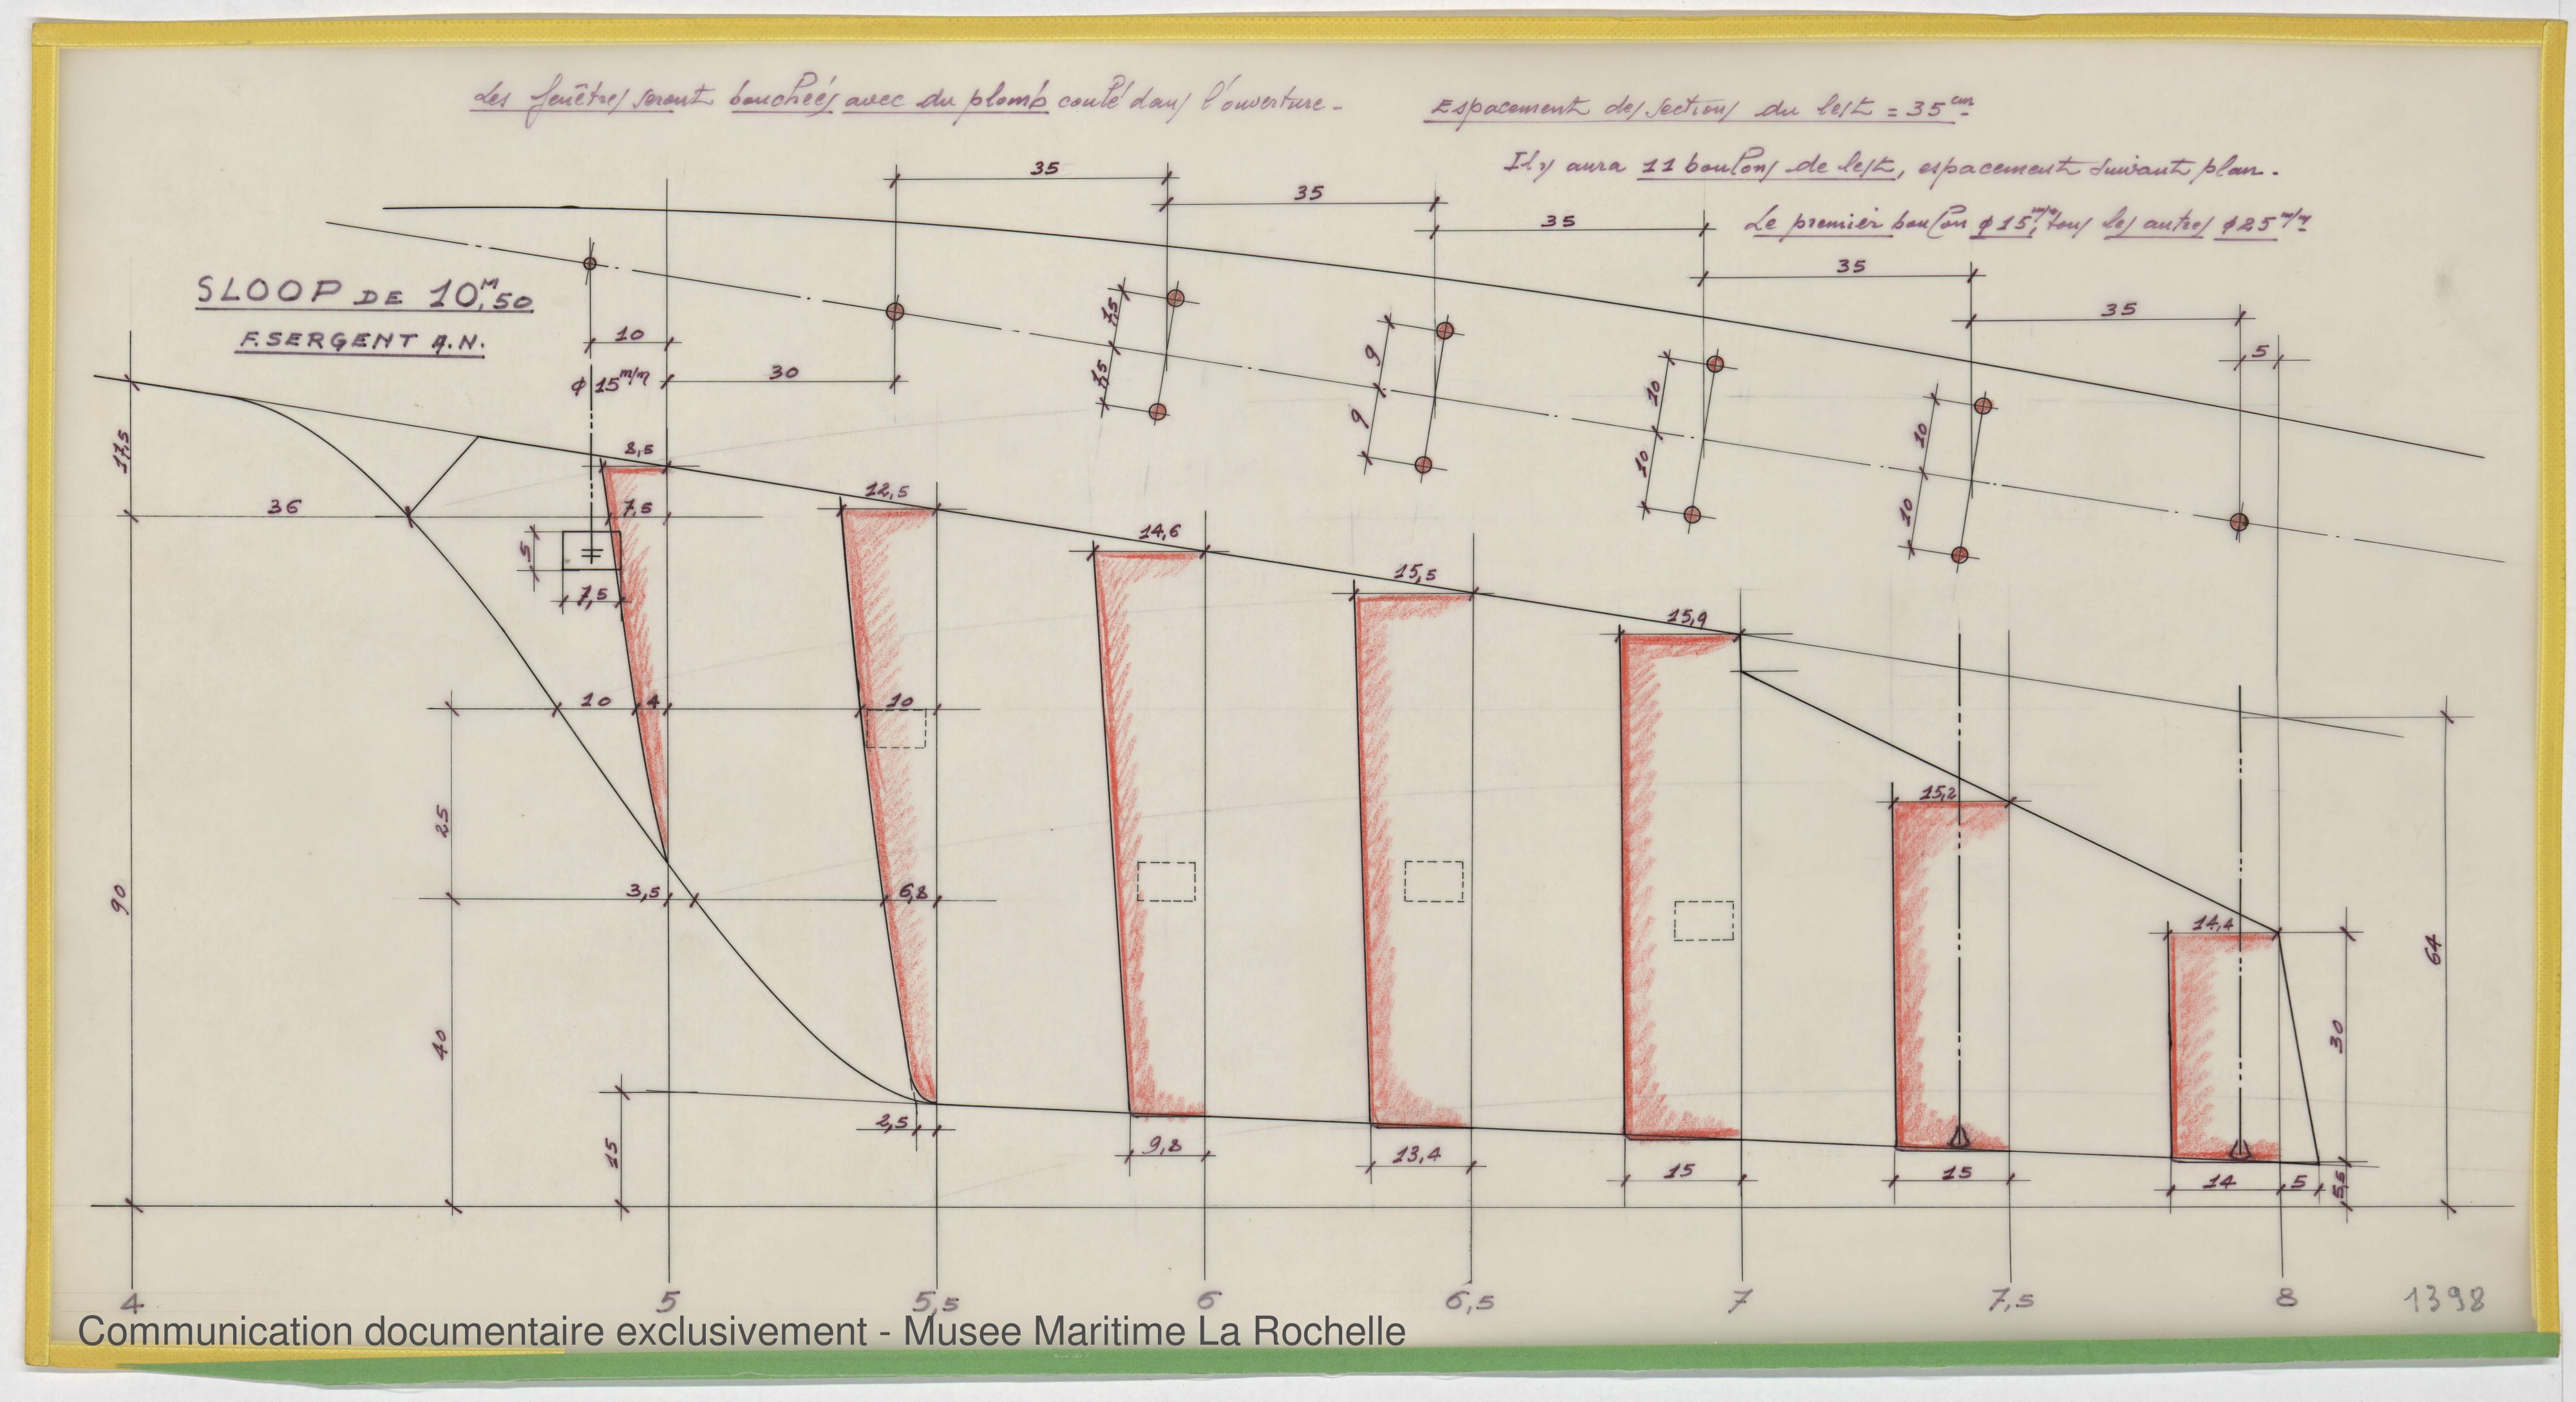 Les fenêtres seront bouchées avec du plomb coulé dans l'ouverture.
Espacement des sections du lest = 35 cm
Il y aura 11 boulons de lest, espacement suivant plan.
Le premier boulon ϕ 15 m/m, tous les autres ϕ 25 m/m
35
35
35
35
35
5
SLOOP DE 10,M50
F. SERGENT A.N.
10
ϕ 15 m/m
30
7,5
7,5
9
9
10
10
10
10
17,5
36
8,5
7,5
5
7,5
12,5
14,6
15,5
15,9
15,2
14,4
10
4
10
25
3,5
6,8
90
40
15
2,5
9,8
13,4
15
15
14
5
5,5
30
64
4
5
5,5
6
6,5
7
7,5
8
1398
Communication documentaire exclusivement - Musee Maritime La Rochelle